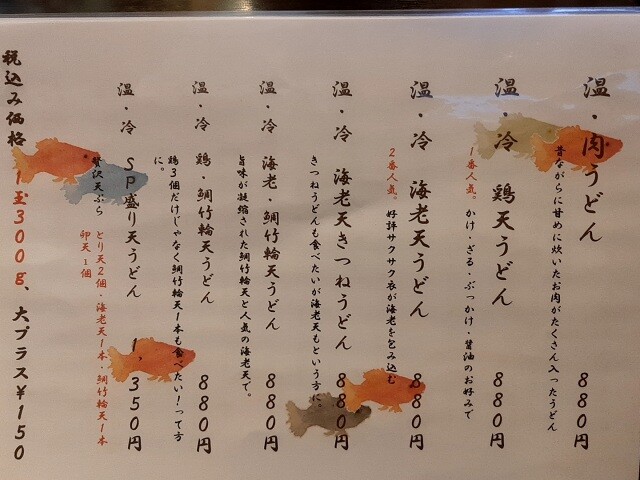 温・肉うどん 880円
昔ながらに甘めに炊いたお肉がたくさん入ったうどん
温・冷 鶏天うどん 880円
1番人気。かけ・ざる・ぶっかけ・醤油のお好みで
温・冷 海老天うどん 880円
2番人気。好評サクサク衣が海老を包み込む
温・冷 海老天きつねうどん 880円
きつねうどんも食べたいが海老天もという方に、
温・冷 海老・鯛竹輪天うどん 880円
旨味が凝縮された鯛竹輪天と人気の海老天で。
温・冷 鶏・鯛竹輪天うどん 880円
鶏3個だけじゃなく鯛竹輪天1本も食べたい！って方
に。
温・冷 SP盛り天うどん 1,350円
贅沢天ぷら とり天2個・海老天1本・鯛竹輪天1本
卵天1個
税込み価格 1玉300g、大プラス¥150